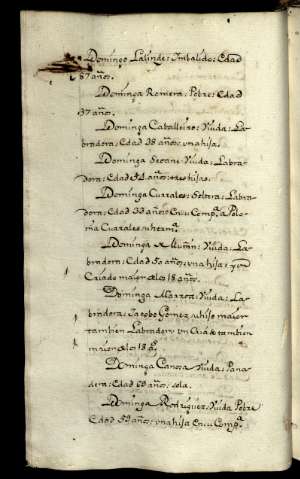 Domingo Lalinde: Imbalido: Edad
67 años.
Dominga Romera: Pobre: Edad
37 años.
Dominga Cavalleiro: Viuda: La-
bradora: Edad 38 años: vna hija.
Dominga Seoani: Viuda: Labra-
dora: Edad 54 años: tres hijas.
Dominga Currales: Soltera: Labra-
dora: Edad 33 años: En su Comp.ª a Polo-
nia Currales su herm.ª
Dominga Viuda: La-
bradora: Edad 50 años: vna hija: y vn
Criado maior de los 18 años.
Dominga Viuda: La-
bradora: Jacobo Gomez, su hijo maior
tambien Labrador: vn Criado tambien
maior de los 18.
Dominga Canosa: Viuda: Pana-
dera: Edad 60 años: sola.
Dominga Rodriguez: Viuda: Pobre
Edad 59 años: vna hija En su Comp.ª